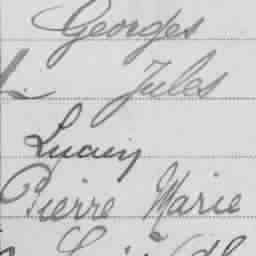 Georges
Jules
Lucien
Pierre Marie